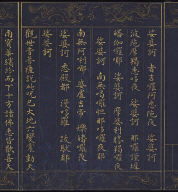 娑婆訶 者吉囉阿悉陀夜
波陀摩羯悉哆夜 娑婆訶 那囉謹墀
皤伽囉哪 娑婆訶 摩婆利勝羯囉夜
娑婆訶 南無喝囉怛那哆囉夜耶
南無阿唎哪 婆盧吉帝 爍皤囉夜
娑婆訶 悉殿都 漫哆囉 跋馱耶
娑婆訶
觀世音菩薩說此呪已大地六變震動天
雨寶華繽紛而下十方諸佛悉皆歡喜天